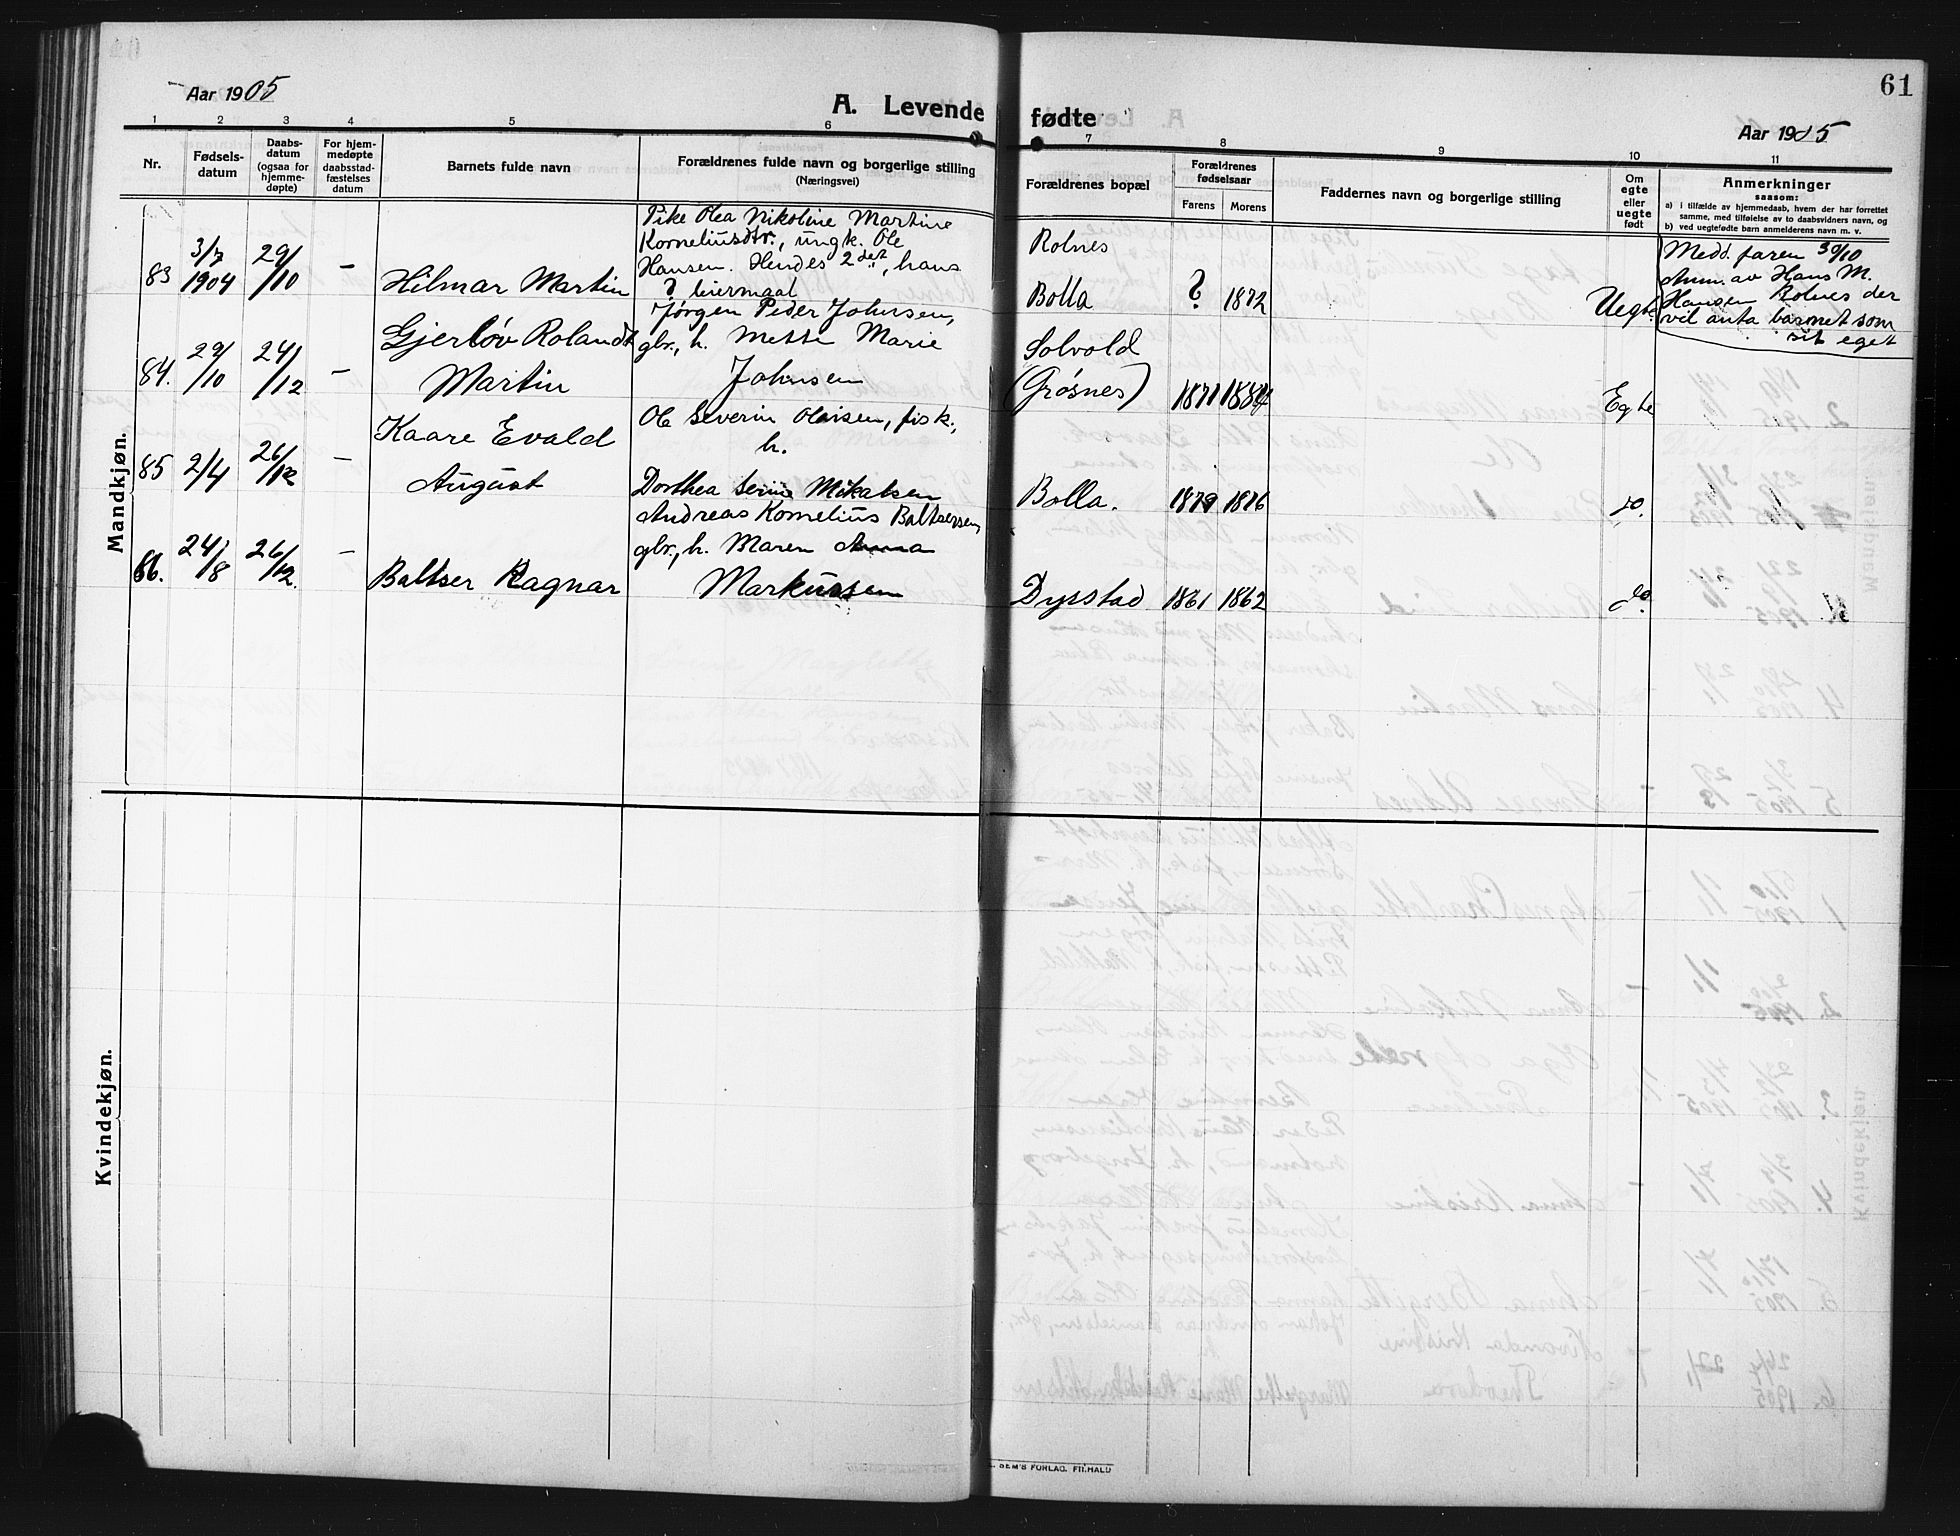 61
Aar 1905
A. Levende fødte
Aar 1905
1 2 3 4 5 6 7 8 9 10 11
Nr.
Fødsels-
datum
Daabs-
datum
(ogsaa for
hjemme-
døpte)
For hjem-
medøpte
daabsstad-
fæstelses
datum
Barnets fulde navn
Forældrenes fulde navn og borgerlige stilling
(Næringsvei)
Forældrenes bopæl
Forældrenes
fødselsaar
Farens Morens
Faddernes navn og borgerlige stilling
Om
egte
eller
uegte
født
Anmerkninger
saasom:
a) i tilfælde av hjemmedaab, hvem der har forrettet
samme, med tilføielse av to daabsvidners navn, og
b) ved uegtefødte barn anmelderens navn m. v.
Mandkjøn.
83 3/7 1904 29/10 - Hilmar Martin
Pike Olea Nikoline Martine
Korneliusdtr., ungk. Ole
Hansen. Hendes 2det, hans
? leiermaal
Rolnes
Bolla ? 1872 Uegte
Medd. faren 30/10
Anm. av Hans M.
Hansen Rolnes der
vil anta barnet som
sit eget
84. 29/10 24/12 - Gjerløv Rolandt
Martin
Jørgen Peder Johnsen,
gbr., h. Mette Marie
Johnsen
Solvold
(Grøsnes) 1871 1884 Egte
85 2/4 26/12 - Kaare Evald
August
Ole Severin Olaisen, fisk.,
h.
Dorthea Serine Mikalsen
Bolla. 1879 1876 do.
86. 24/8 26/12. - Baltser Ragnar
Andreas Kornelius Baltsersen,
gbr., h. Maren Anna
Markussen
Dyrstad 1861 1862 do.
Kvindekjøn.
SEM'S FORLAG. FR.HALD